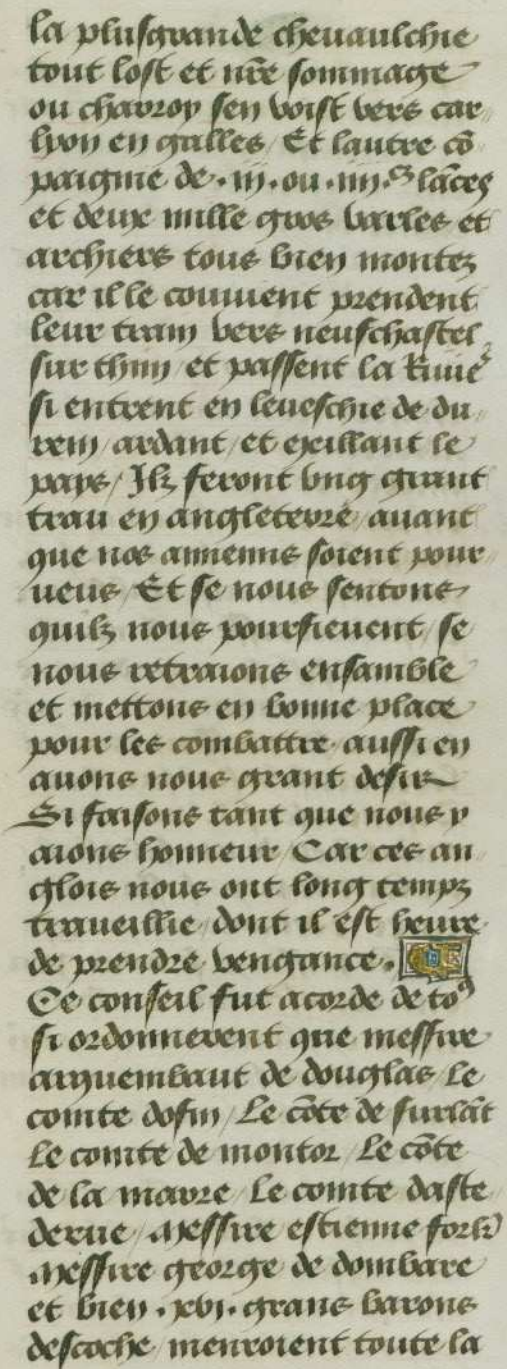 la plusgrande cheuaulchie
tout lost et nr̃e sommage
ou charroy sen voist vers car
lyon en galles / Et lautre cõ
paignie de .iij. ou .iiij.ᶜ lãces
et deux mille gros varles et
archiers tous bien montez
car il le conuient prendent
leur train vers neufchastel
sur thin et passent la Riuieʳ
si entrent en leueschie de du
rem / ardant / et exillant le
pays / Ilz feront vng grant
trau en angleterre / auant
que nos annemis soient pour
ueus / Et se nous sentons
quilz nous poursieuent / se
nous retraions ensamble
et mettons en bonne place
pour les combattre / aussi en
auons nous grant desir
Si faisons tant que nous y
aions honneur / Car ces an
glois nous ont long temps
traueillie / dont il est heure
de prendre vengance .
Ce conseil fut acorde de toꝰ
si ordonnerent que messire
arquembaut de douglas / le
comte dofin / Le cõte de surlãt
Le comte de montor / Le cõte
de la marre / Le comte daste
derue / Messire estienne
Messire george de dombare
et bien .xvi. grans barons
descoche / menroient toute la